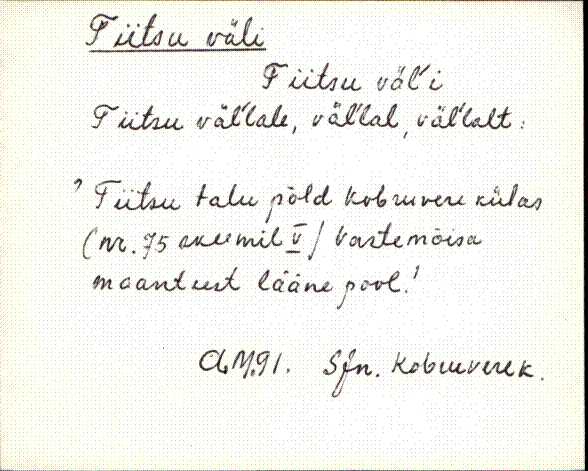 Tiitsu väli
Tiitsu väl'i
Tiitsu väl'lale, väl'lal, väl'lalt:
' Tiitsu talu põld Kobruvere külas
(nr. 75 skeemil V) Vastemõisa
maanteest lääne pool.'
AM.91. Sjn. Kobruvere k.